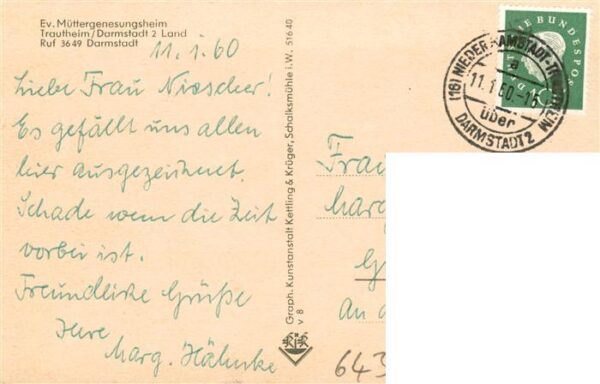 Ev. Müttergenesungsheim
Trautheim/Darmstadt 2 Land
Ruf 3649 Darmstadt
11.1.60
Liebe Frau
Es gefällt uns allen
hier ausgezeichnet.
Schade wenn die Zeit
vorbei ist.
Freundliche Grüße
Ihre
Marg. Hähnke
Graph. Kunstanstalt Kettling & Krüger, Schalksmühle i.W. 51640
v 8
K&K
(16) NIEDER-RAMSTADT-TRAUTHEIM
a
11.1.60.-15
über
DARMSTADT 2
DEUTSCHE BUNDESPOST
Frau
Marg
G
An d
643